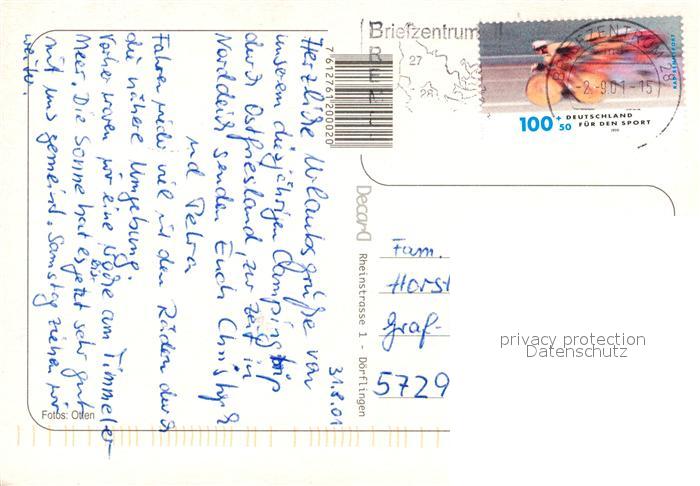 31.8.01
Herzliche Urlaubsgrüße von
unserem diesjährigen Campingtrip
durch Ostfriesland, zur Zeit in
Norddeich senden Euch
und Petra
Fahren viel mit den Rädern durch
die nähere Umgebung.
Vorher waren wir eine Woche am Timmeler
Meer. Die Sonne hat es jetzt sehr gut
mit uns gemeint. Samstag ziehen wir
weiter.
Fotos: Otten
7612761200020
Decard
Rheinstrasse 1 - Dörflingen
Briefzentrum
27
28
BRIEFZENTRUM 28
-2.-9.01-15
100 + 50
DEUTSCHLAND
FÜR DEN SPORT
Fam.
Horst
Graf-
5729
privacy protection
Datenschutz